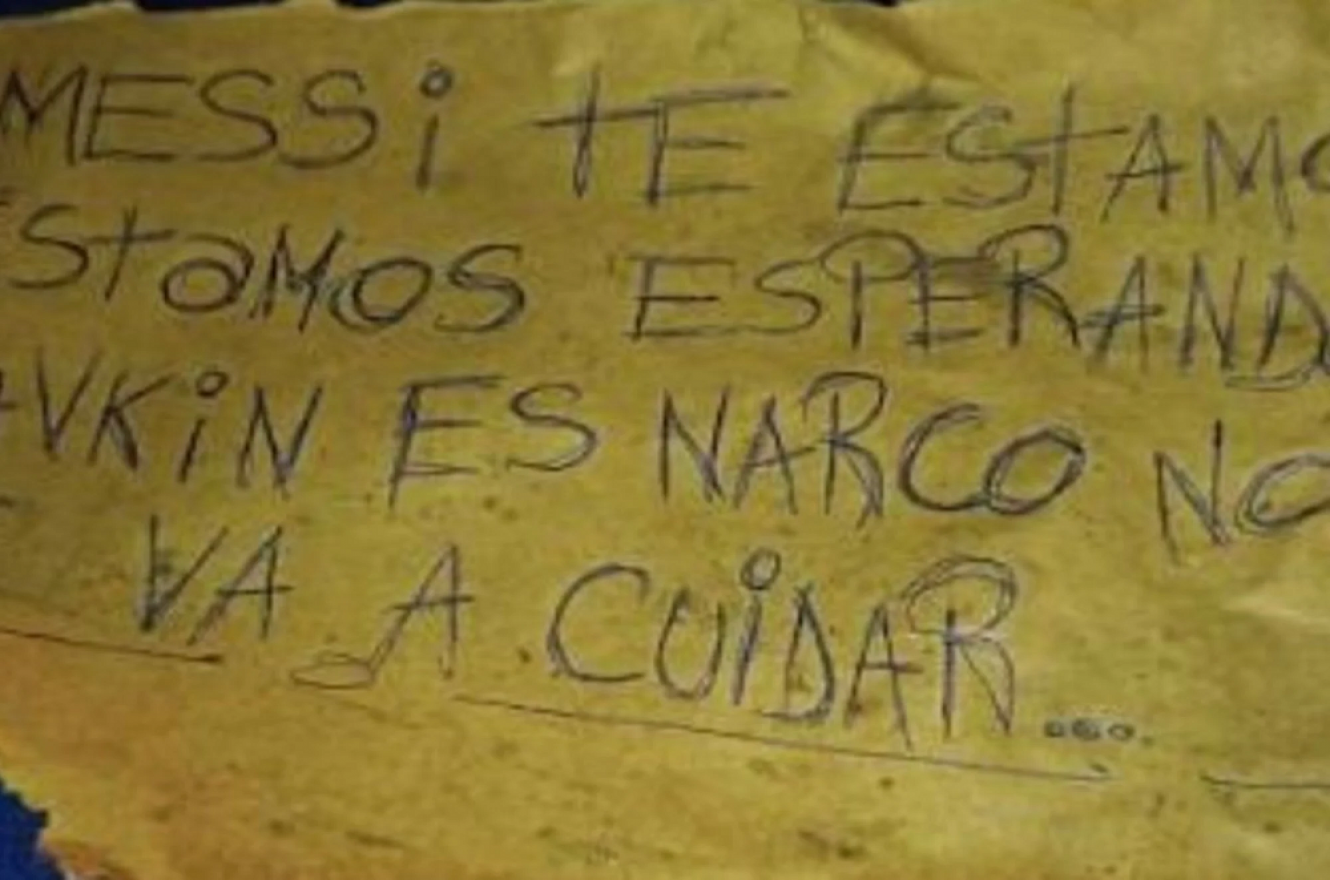 MESSi TE ESTAMO
EStaMOS ESPERANDO
AVKiN ES NARCO NO
VA A CUiDAR....